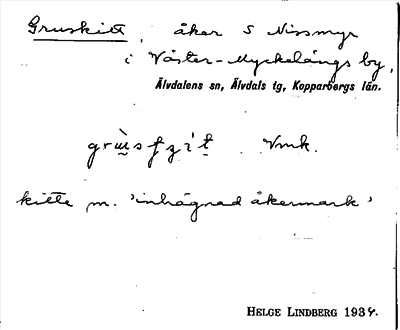 Gruskitt, åker S Nissmyr
i Väster-Myckelängs by,
Älvdalens sn, Älvdals tg, Kopparbergs län.
Vmk.
kitte m. 'inhägnad åkermark'
HELGE LINDBERG 1934.